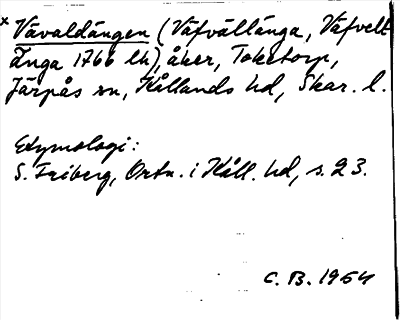 × Vävaldängen (Väfvällänga, Väfvelt
Änga 1766 lh), åker, Toketorp,
Järpås sn, Kållands hd, Skar. l.
Etymologi:
S. Friberg, Ortn. i Kåll. hd, s. 23.
C. B. 1964